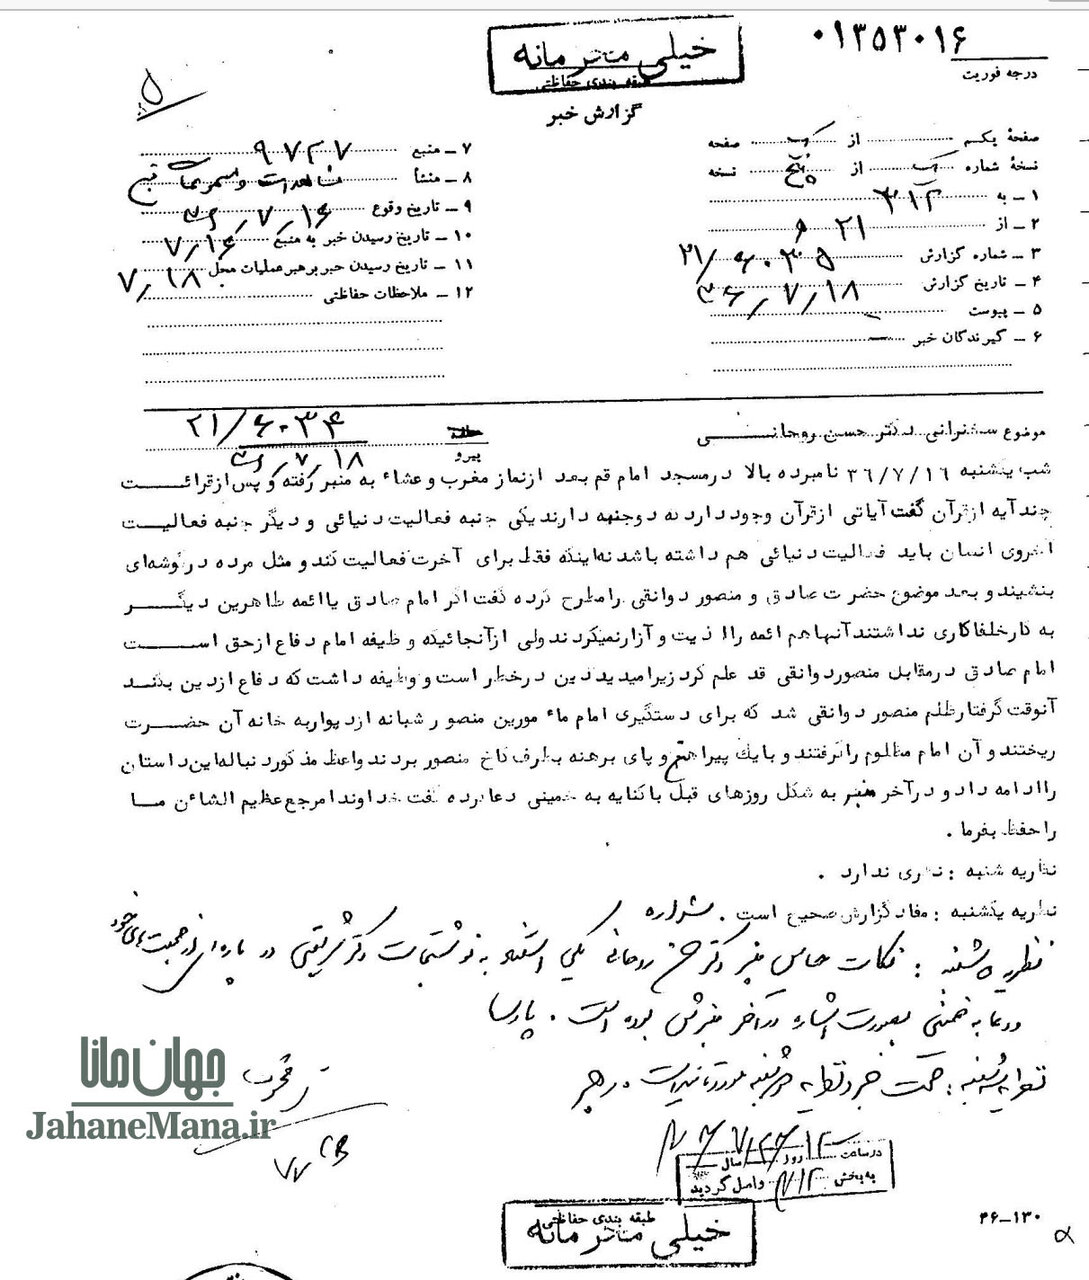 ۰۱۳۵۳۰۱۶
خیلی محرمانه
طبقه بندی حفاظتی
درجه فوریت
گزارش خبر
۵
صفحهٔ یکم از یک صفحه
نسخهٔ شماره یک از پنج نسخه
۱ ـ به ۳۱۲
۲ ـ از ۲۱ ه
۳ ـ شماره گزارش ۲۱/۶۰۳۵
۴ ـ تاریخ گزارش ۳۶/۷/۱۸
۵ ـ پیوست
۶ ـ گیرندگان خبر
۷ ـ منبع ۹۷۲۷
۸ ـ منشأ مشاهدات و مسموعات منبع
۹ ـ تاریخ وقوع ۳۶/۷/۱۶
۱۰ ـ تاریخ رسیدن خبر به منبع ۷/۱۶
۱۱ ـ تاریخ رسیدن خبر برهبر عملیات محل ۷/۱۸
۱۲ ـ ملاحظات حفاظتی
موضوع سخنرانی دکتر حسن روحانی
پیرو ۲۱/۶۰۳۴
۳۶/۷/۱۸
شب یکشنبه ۳۶/۷/۱۶ نامبرده بالا در مسجد امام قم بعد از نماز مغرب و عشاء به منبر رفته و پس از قرائت
چند آیه از قرآن گفت آیاتی از قرآن وجود دارد که دو جنبه دارند یکی جنبه فعالیت دنیائی و دیگر جنبه فعالیت
اخروی انسان باید فعالیت دنیائی هم داشته باشد نه اینکه فقط برای آخرت فعالیت کند و مثل مرده در گوشه‌ای
بنشیند و بعد موضوع حضرت صادق و منصور دوانقی را مطرح کرده گفت اگر امام صادق یا ائمه طاهرین دیگر
به کار خلفا کاری نداشتند آنها هم ائمه را اذیت و آزار نمیکردند ولی از آنجائیکه وظیفه امام دفاع از حق است
امام صادق در مقابل منصور دوانقی قد علم کرد زیرا میدید دین در خطر است و وظیفه داشت که دفاع از دین بکند
آنوقت گرفتار ظلم منصور دوانقی شد که برای دستگیری امام مأمورین منصور شبانه از دیوار به خانه آن حضرت
ریختند و آن امام مظلوم را گرفتند و با یک پیراهن و پای برهنه بطرف کاخ منصور بردند واعظ مذکور دنباله این داستان
را ادامه داد و در آخر منبر به شکل روزهای قبل با کنایه به خمینی دعا کرده گفت خداوندا مرجع عظیم الشائن ما
را حفظ بفرما .
نظریه شنبه : نظری ندارد .
نظریه یکشنبه : مفاد گزارش صحیح است . شراره
نظریه دوشنبه : نکات حساس منبر دکتر حسن روحانی یکی استناد به نوشتجات دکتر شریعتی در پاره‌ای از صحبت‌های خود
و دعا به خمینی بصورت اشاره در آخر منبرش بوده است . پارسا
نظریه سه‌شنبه : صحت خبر و نظریه دوشنبه مورد تائید است . رهبر
در ساعت ۱۲ روز سال
به بخش ۳۱۲ واصل گردید
خیلی محرمانه
طبقه بندی حفاظتی
۴۶-۱۳۰
جهان مانا
JahaneMana.ir